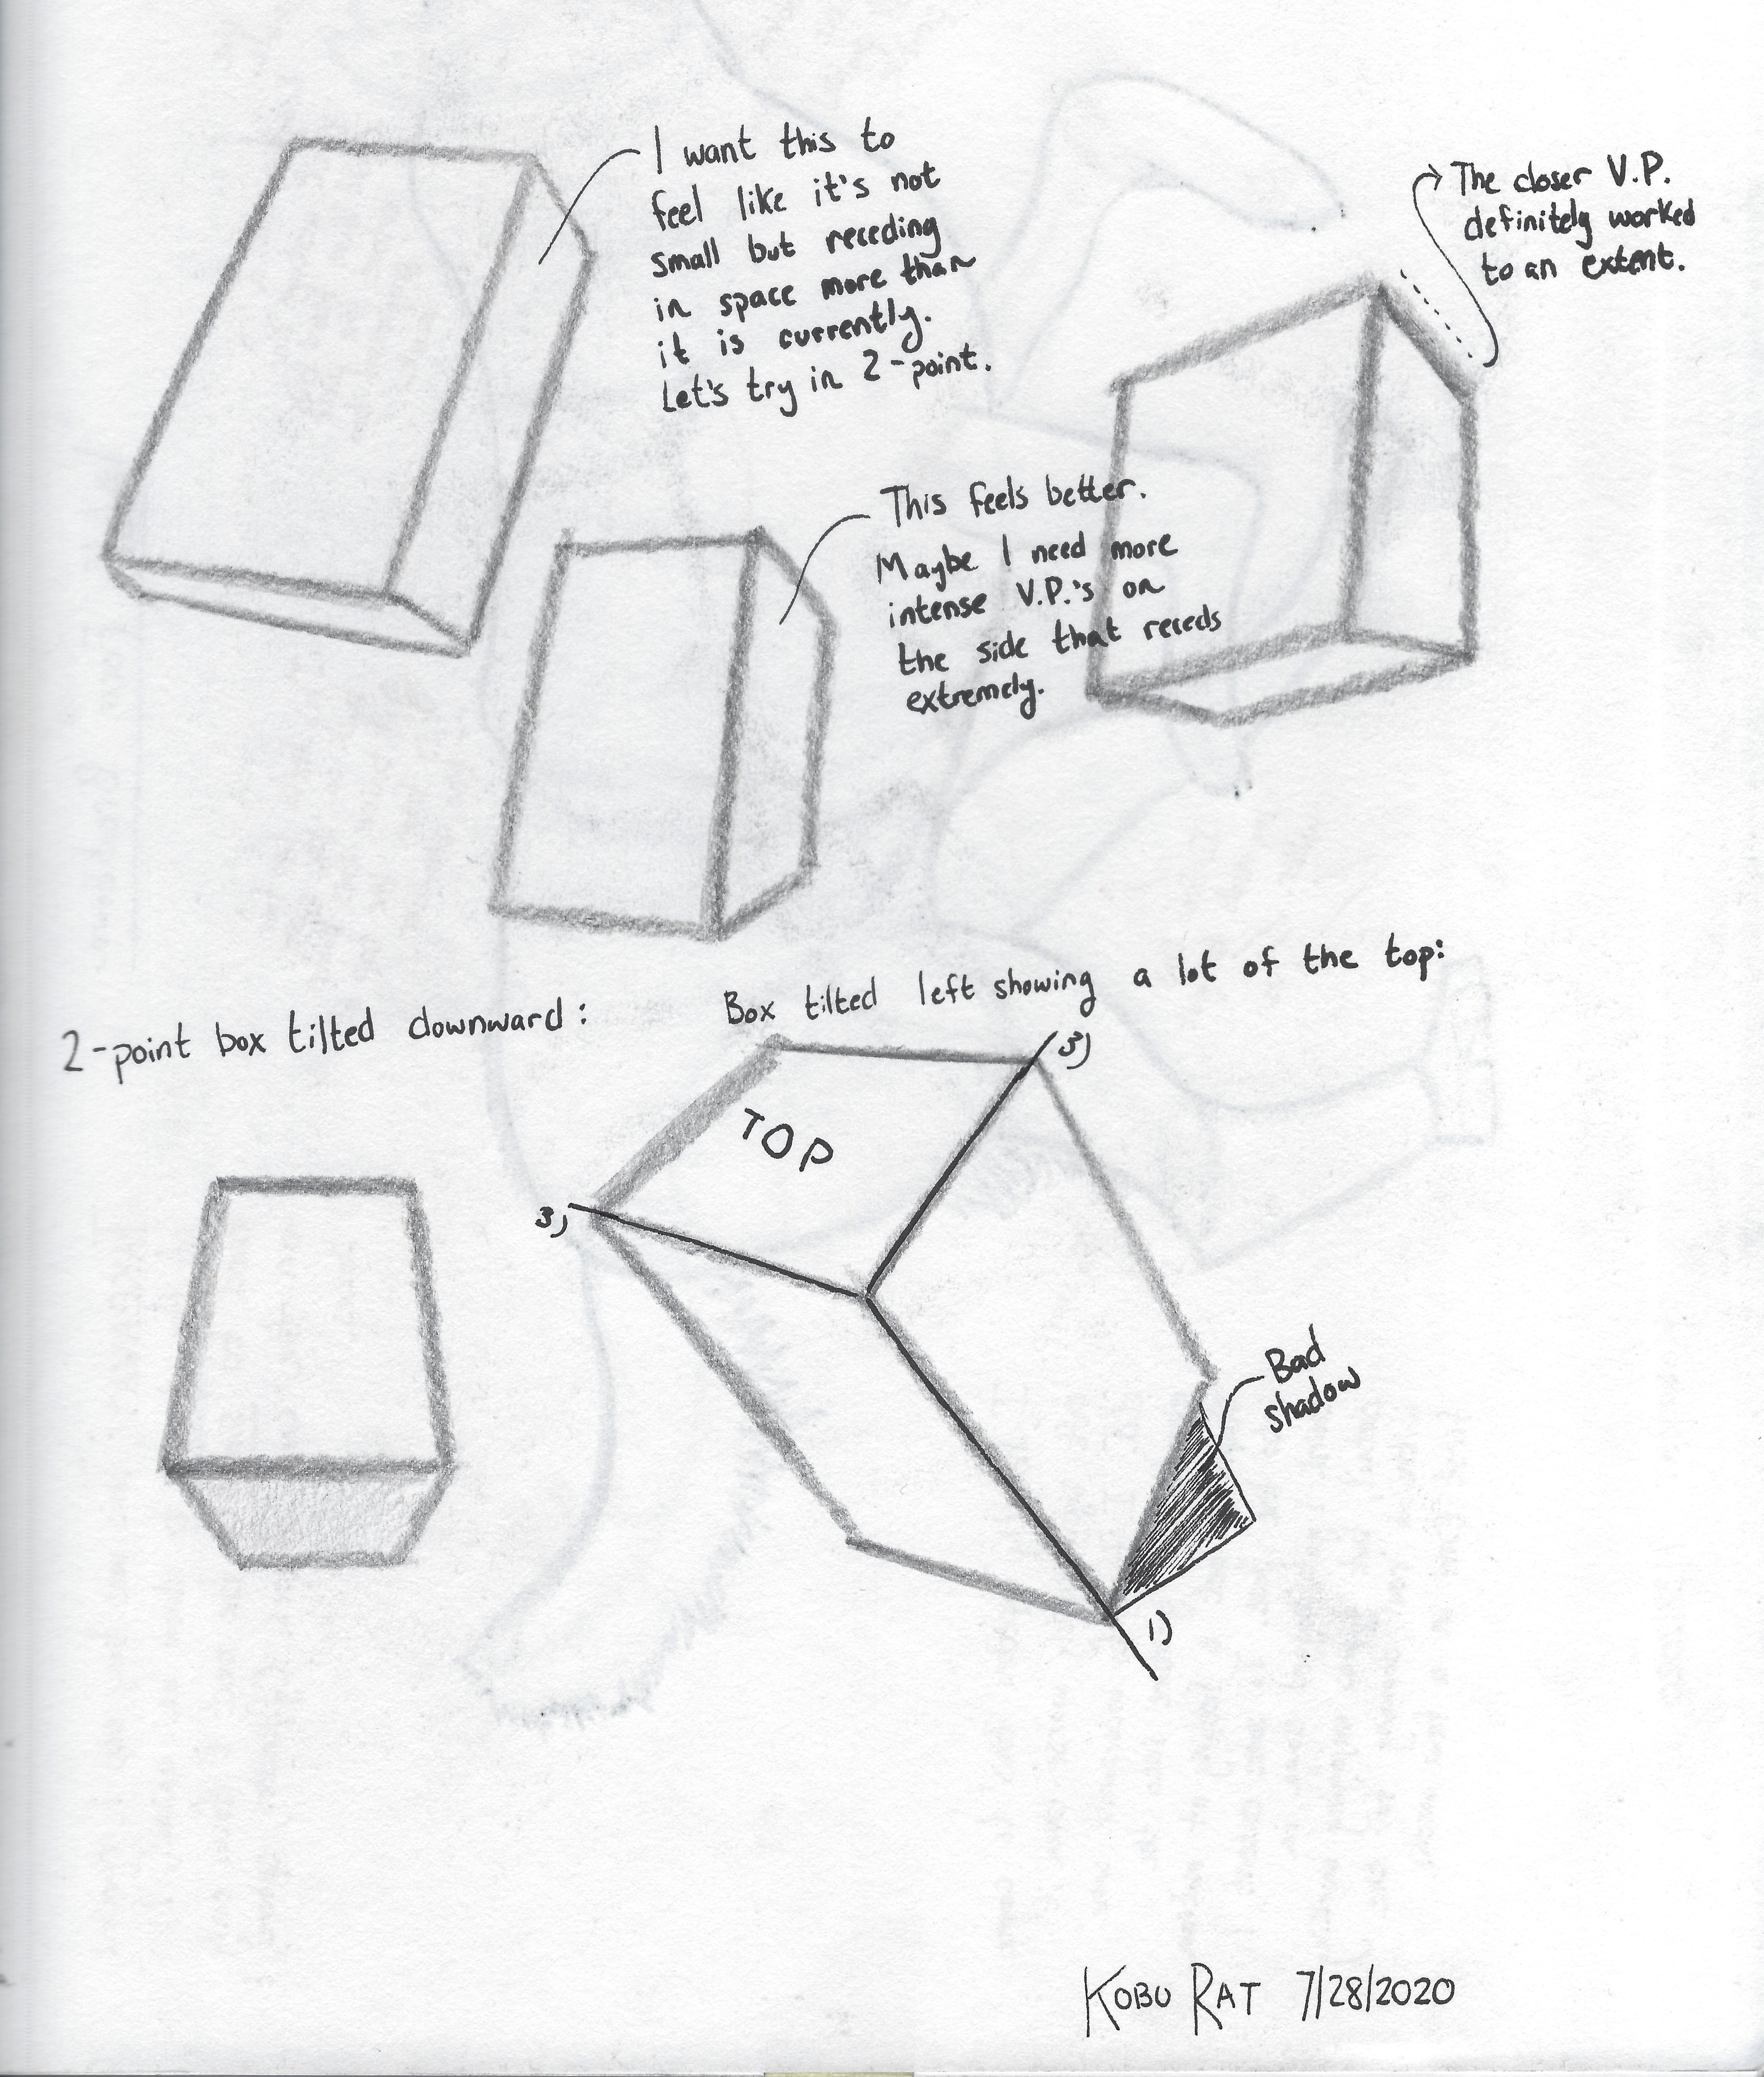 I want this to
feel like it's not
small but receding
in space more than
it is currently.
Let's try in 2-point.
The closer V.P.
definitely worked
to an extent.
This feels better.
Maybe I need more
intense V.P.'s on
the side that receds
extremely.
2-point box tilted downward:
Box tilted left showing a lot of the top:
3)
TOP
3)
Bad
shadow
1)
KOBU RAT 7/28/2020